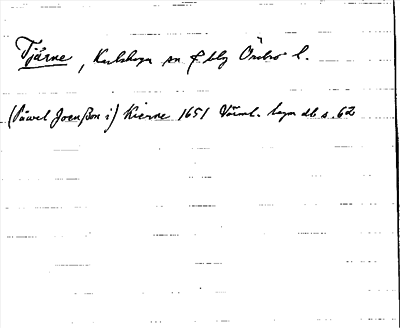 Tjärne, Karlskoga sn o. blg Örebro l.
(Påwel Joenßon i) Kierne 1651 Värml. hagm db s. 62